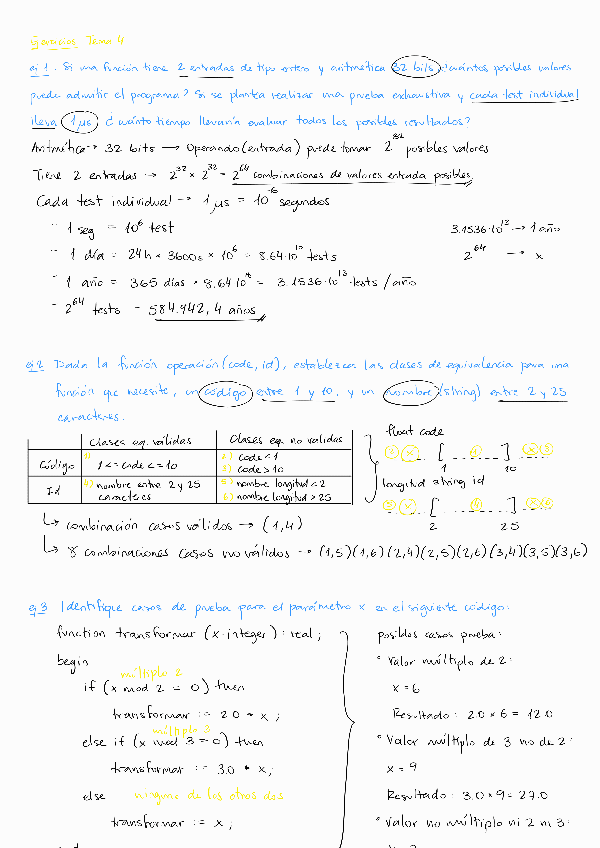 Ejercicios Tema 4
ej 1. Si una función tiene 2 entradas de tipo entero y aritmética 32 bits ¿cuántos posibles valores
puede admitir el programa? Si se plantea realizar una prueba exhaustiva y cada test individual
lleva 1 μs ¿cuánto tiempo llevaría evaluar todos los posibles resultados?
Aritmética → 32 bits → Operando (entrada) puede tomar 2^32 posibles valores
Tiene 2 entradas → 2^32 × 2^32 = 2^64 combinaciones de valores entrada posibles
Cada test individual → 1 μs = 10^-6 segundos
- 1 seg = 10^6 test
- 1 día = 24h × 3600s × 10^6 = 8.64·10^10 tests
- 1 año = 365 días × 8.64·10^10 = 3.1536·10^13 tests/año
- 2^64 tests → 584.942,4 años
3.1536·10^13 → 1 año
2^64 → x
ej 2 Dada la función operación (code, id), establezca las clases de equivalencia para una
función que necesite, un código entre 1 y 10, y un nombre (string) entre 2 y 25
caracteres.
Clases eq. válidas
Clases eq. no validas
Código
1) 1 <= code <= 10
2) code < 1
3) code > 10
Id
4) nombre entre 2 y 25
caracteres
5) nombre longitud < 2
6) nombre longitud > 25
float code
1 10
longitud string id
2 25
↳ combinación casos válidos → (1,4)
↳ 8 combinaciones casos no válidos → (1,5)(1,6)(2,4)(2,5)(2,6)(3,4)(3,5)(3,6)
ej 3 Identifique casos de prueba para el parámetro x en el siguiente código:
function transformar (x:integer): real;
begin
múltiplo 2
if (x mod 2 = 0) then
transformar := 2.0 * x;
múltiplo 3
else if (x mod 3 = 0) then
transformar := 3.0 * x;
else ninguno de los otros dos
transformar := x;
posibles casos prueba:
• Valor múltiplo de 2:
x = 6
Resultado: 2.0 × 6 = 12.0
• Valor múltiplo de 3 no de 2:
x = 9
Resultado: 3.0 × 9 = 27.0
• Valor no múltiplo ni 2 ni 3: